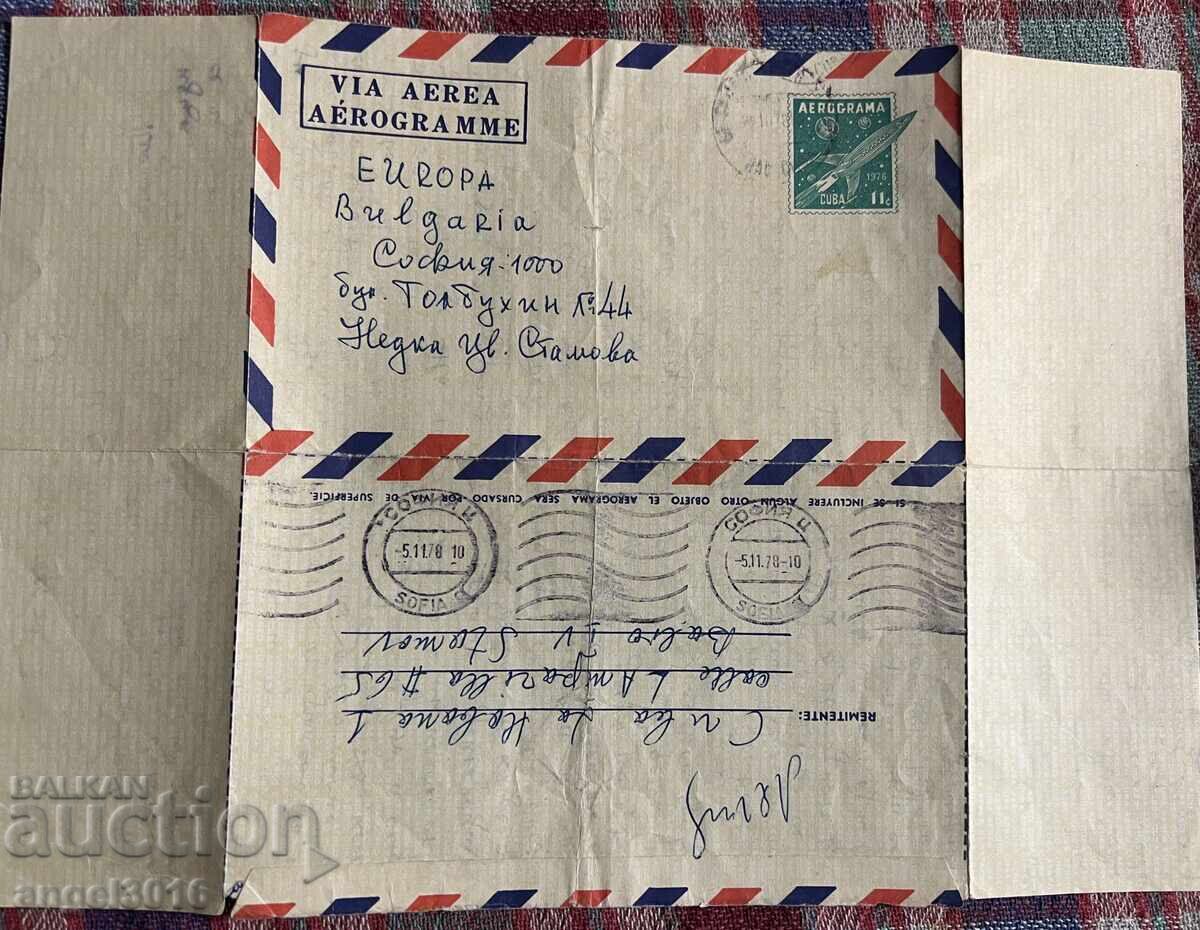 VIA AEREA
AÉROGRAMME
AEROGRAMA
1976
CUBA 11c
EUROPA
Bulgaria
София-1000
бул. Толбухин №44
Недка Цв. Стамова
SI SE INCLUYERE ALGUN OTRO OBJETO EL AEROGRAMA SERA CURSADO POR VIA DE SUPERFICIE.
СОФИЯ Ц
-5.11.78 10
SOFIA
СОФИЯ Ц
-5.11.78-10
SOFIA
REMITENTE:
Cuba La Habana 1
calle LAmparilla #65
Stamov
BALKAN
auction
angel3016